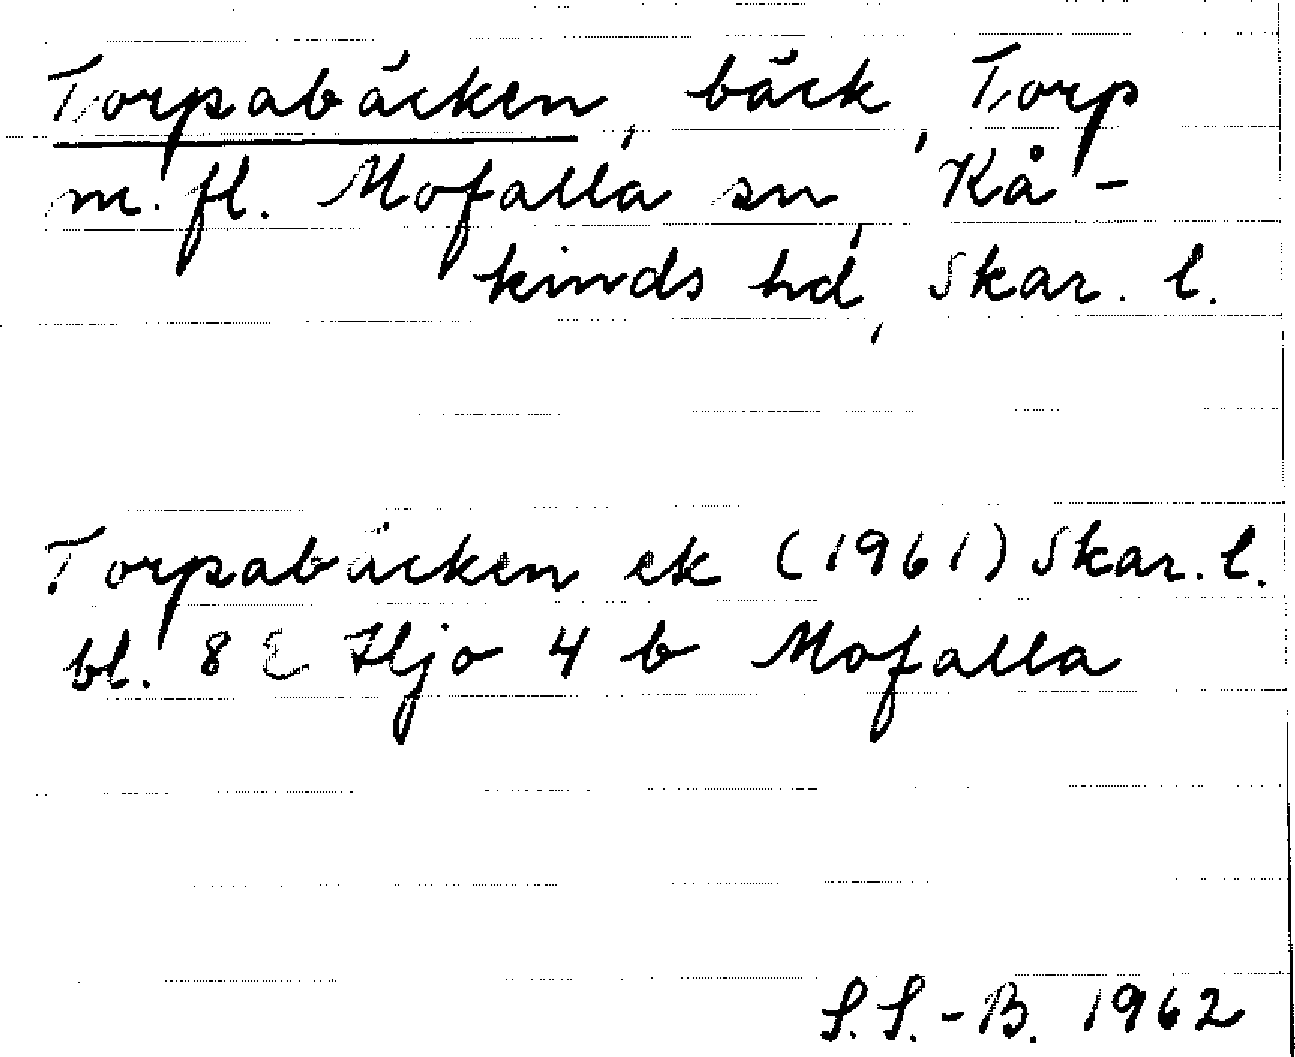 Torpabäcken, bäck, Torp
m. fl. Mofalla sn, Kå-
kinds hd, Skar. l.
Torpabäcken ek (1961) Skar. l.
bl. 8 E Hjo 4 b Mofalla
S.S.-B. 1962